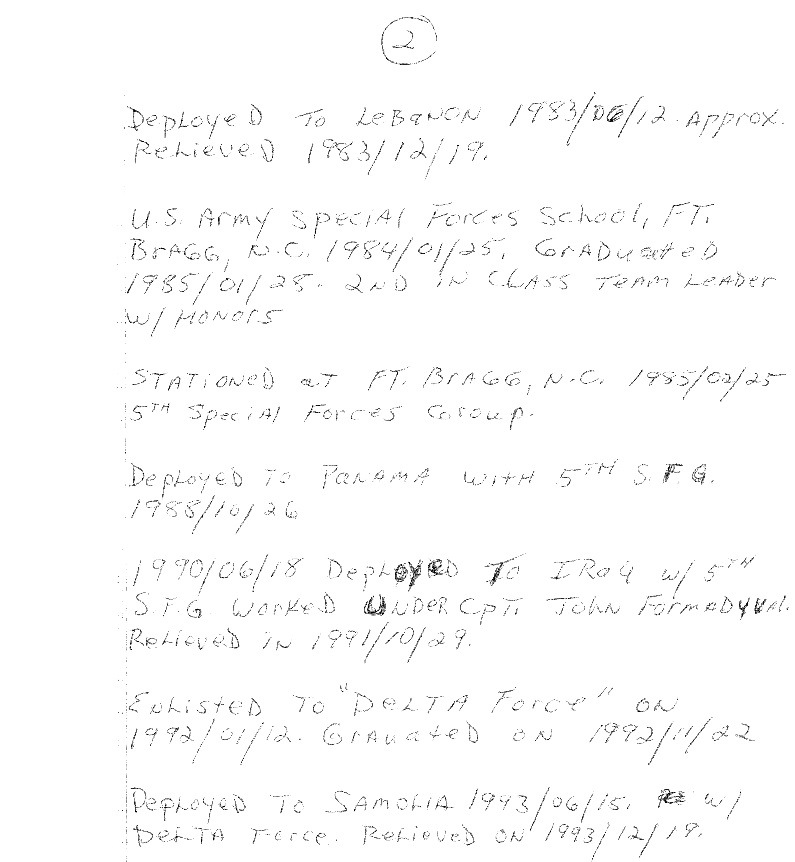 2
Deployed To Lebanon 1983/06/12 Approx.
Relieved 1983/12/19.
U.S. Army Special Forces School, FT.
Bragg, N.C. 1984/01/25. Graduated
1985/01/28. 2ND in Class Team Leader
w/ Honors
Stationed at FT. Bragg, N.C. 1985/02/25
5TH Special Forces Group.
Deployed to Panama with 5TH S.F.G.
1988/10/26
1990/06/18 Deployed To Iraq w/ 5TH
S.F.G. Worked Under Cpt. John
Relieved in 1991/10/29.
Enlisted To "Delta Force" on
1992/01/12. Grauated on 1992/11/22
Deployed To Samolia 1993/06/15. w/
Delta Force. Relieved on 1993/12/19.